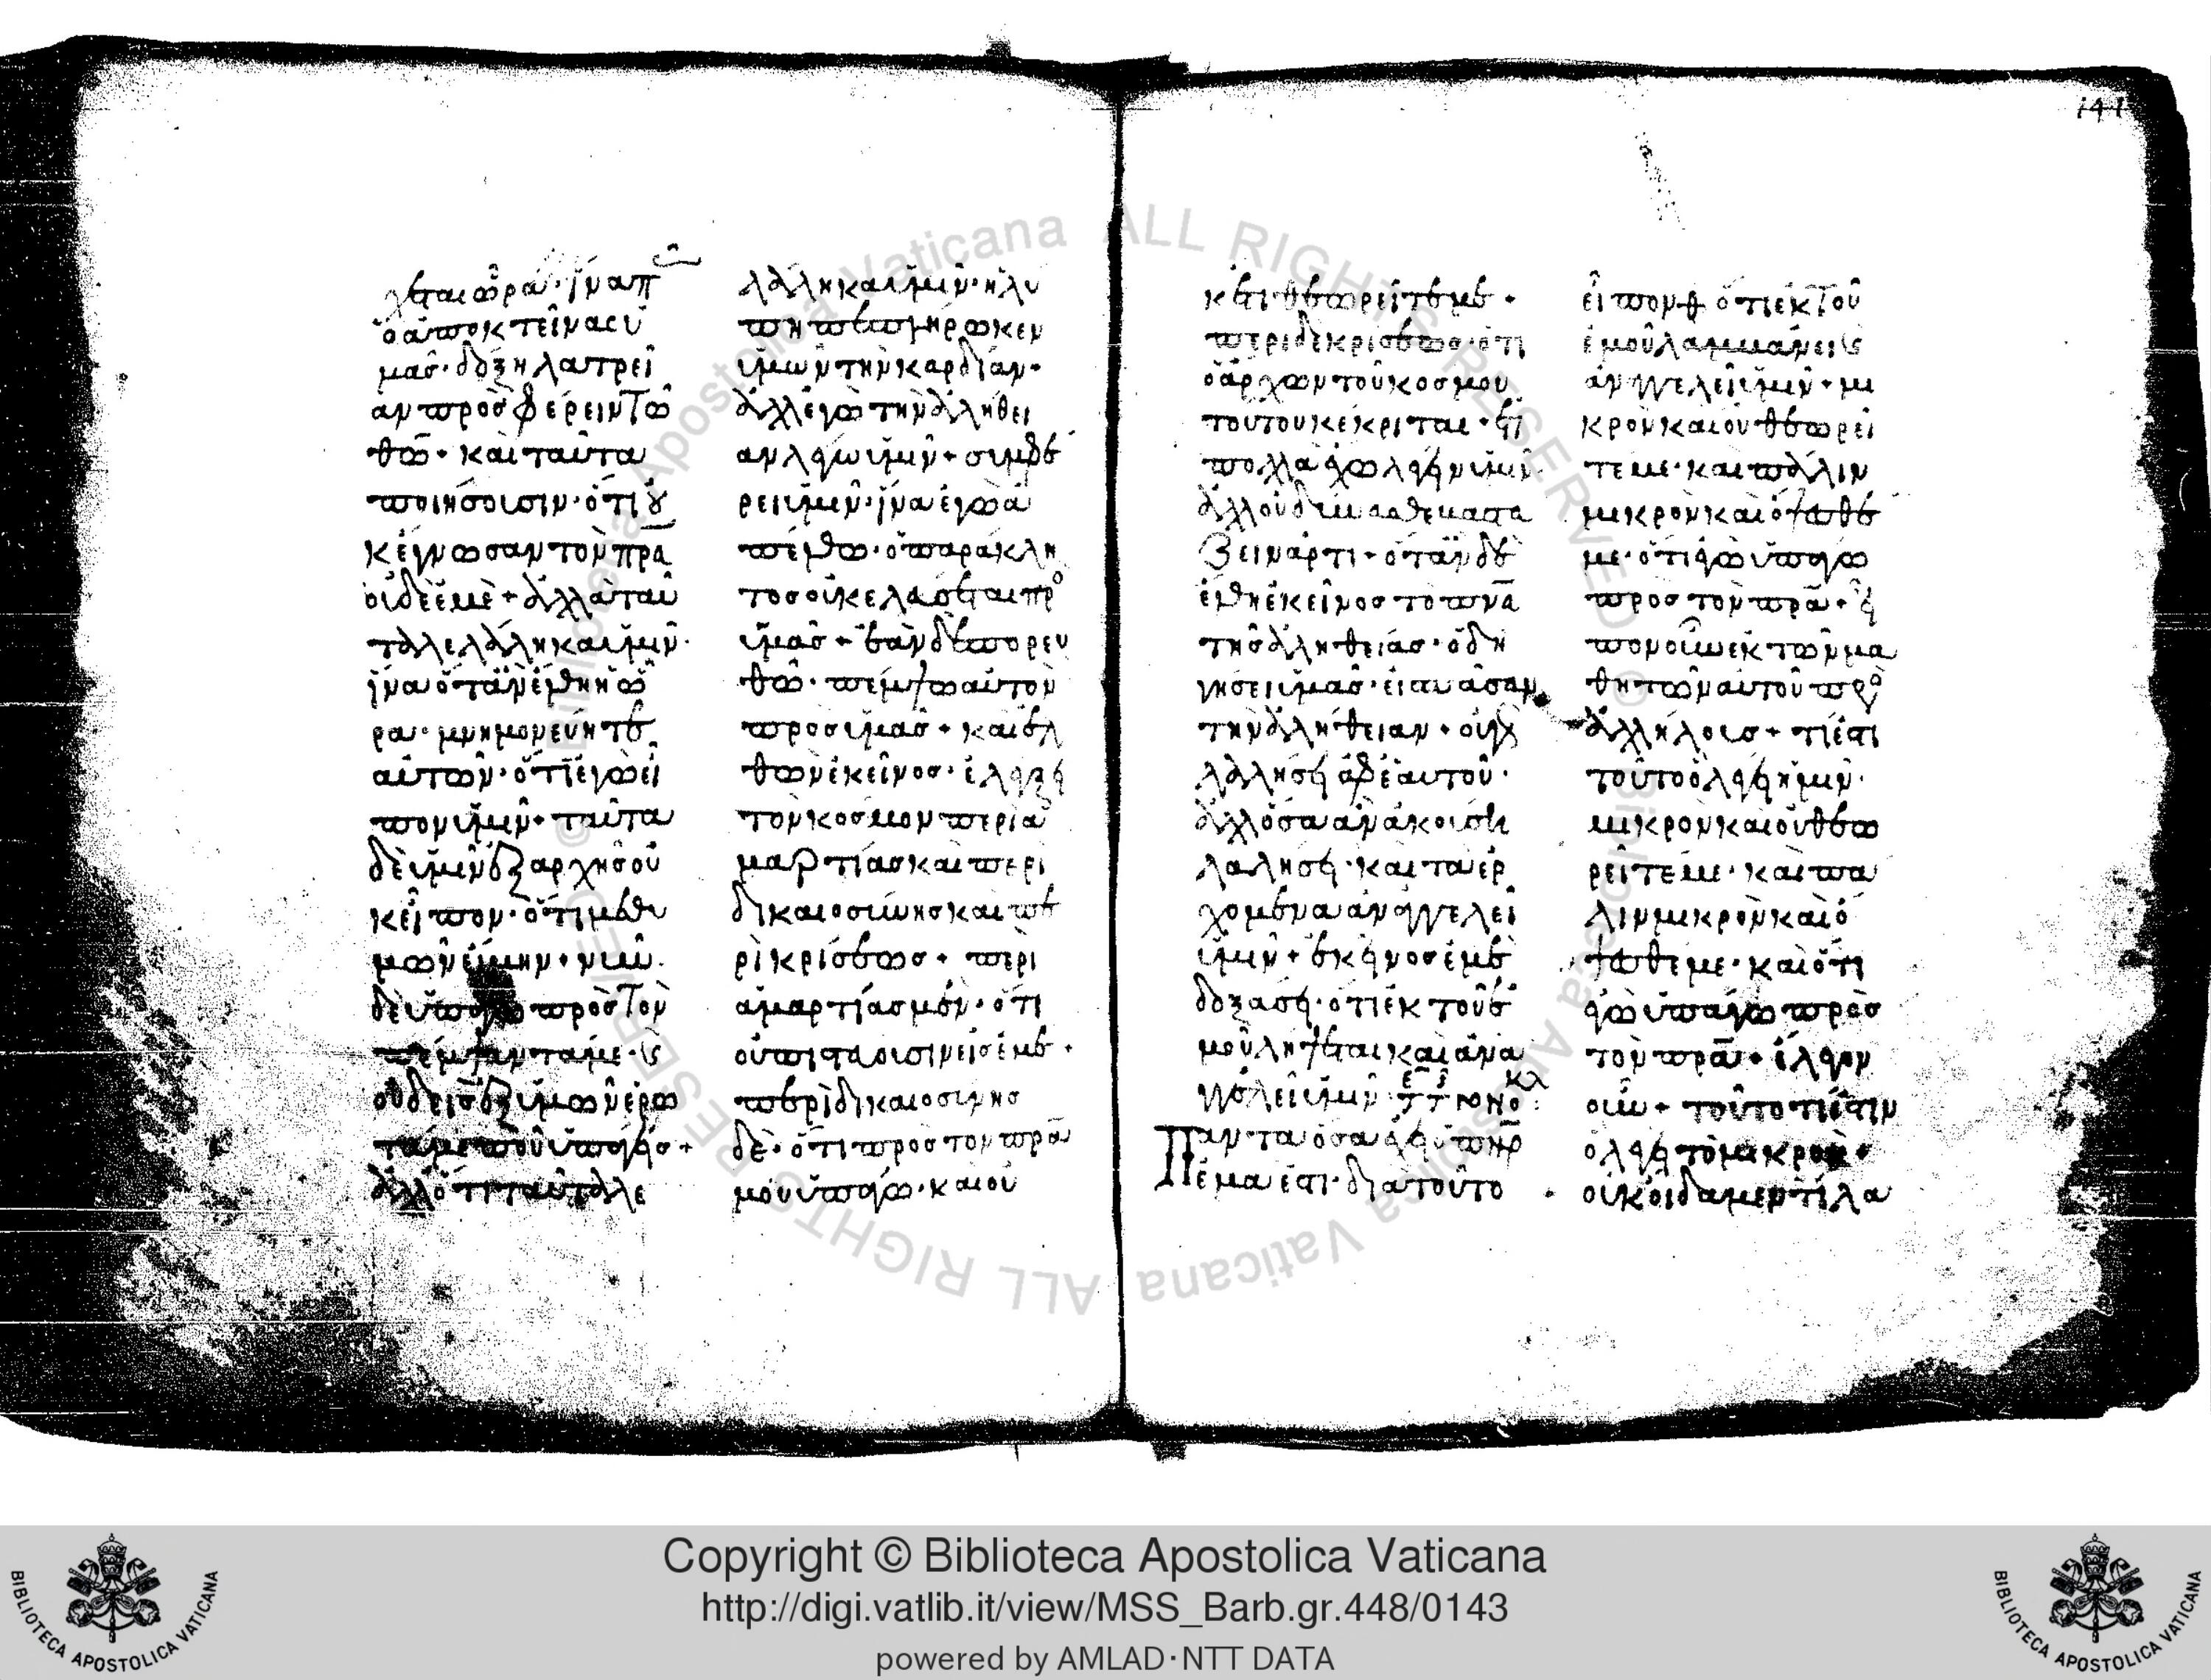 χεται ὥρα· ἵνα π
ὁ ἀποκτείνας ὑ
μᾶς· δόξη λατρεί
αν προσφέρειν τῶ
θῶ· καὶ ταῦτα
ποιήσουσιν· ὅτι οὐ
κ ἔγνωσαν τὸν πρα
οὐδὲ ἐμὲ + ἀλλὰ ταῦ
τα λελάληκα ὑμῖν·
ἵνα ὅταν ἔλθη ἡ ὥ
ρα· μνημονεύητε
αὐτῶν· ὅτι ἐγὼ εἶ
πον ὑμῖν + ταῦτα
δὲ ὑμῖν ἐξ αρχῆς οὐ
κ εἶπον· ὅτι μεθ υ
μῶν εἴμην + νῦν
δὲ ὑπάγω πρὸς τὸν
πέμψαντά με· καὶ
οὐδεὶς ἐξ ὑμῶν ἐρω
τᾶ με ποῦ ὑπάγεις +
ἀλλ ὅτι ταῦτα λε
λάληκα ὑμῖν· ἡ λυ
πη πεπλήρωκεν
ὑμῶν τὴν καρδίαν·
ἀλλ ἐγὼ τὴν ἀλήθει
αν λέγω ὑμῖν + συμφέ
ρει ὑμῖν· ἵνα ἐγὼ ἀ
πέλθω· ὁ παράκλη
τοσ οὐκ ελεύσεται πρ
ὑμᾶς + ἐὰν δὲ πορευ
θῶ· πέμψω αὐτὸν
προσ ὑμᾶς + καὶ ἐλ
θὼν ἐκεῖνος· ἐλέγξει
τὸν κοσμον περὶ ἁ
μαρτίας καὶ περὶ
δικαιοσύνησ καὶ πε
ρὶ κρίσεως + περὶ
ἁμαρτίας μέν· ὅτι
οὐ πιστεύουσιν εἰς ἐμέ +
περὶ δικαιοσύνησ
δὲ· ὅτι προσ τον πρα
μου ὑπάγω· καὶ οὐ
κ ἔτι θεωρεῖτέ με +
περὶ δὲ κρίσεωσ· ὅτι
ὁ ἄρχων τοῦ κοσμου
τούτου κέκριται + ἔτι
πολλὰ ἔχω λέγειν ὑμῖν
ἀλλ οὐ δύνασθε βαστα
ζειν ἄρτι + ὅταν δὲ
ἔλθη ἐκεῖνοσ το πνα
τῆς ἀληθείας· ὁδη
γήσει ὑμᾶς· εἰσ πᾶσαν
τὴν ἀλήθειαν + οὐ γὰρ
λαλήσει ἀφ ἑαυτοῦ·
ἀλλ ὅσα ἂν ἀκούση
λαλήσει· καὶ τὰ ἐρ
χόμενα ἀναγγελεῖ
ὑμῖν + ἐκεῖνοσ ἐμὲ
δοξάσει· ὅτι ἐκ τοῦ ἐ
μοῦ λήψεται καὶ ἀνα
γγελεῖ ὑμῖν
Πάντα ὅσα ἔχει ὁ πηρ
ἐμά ἐστι· διὰ τοῦτο
εἶπον ὅτι ἐκ τοῦ
ἐμοῦ λαμβάνει καὶ
ἀναγγελεῖ ὑμῖν + μι
κρὸν καὶ οὐ θεωρεῖ
τέ με· καὶ πάλιν
μικρὸν καὶ ὄψεσθέ
με· ὅτι ἐγὼ ὑπάγω
προσ τὸν πρα +
πον οὖν ἐκ τῶν μα
θητῶν αὐτοῦ πρὸ
ἀλλήλουσ + τί ἐστι
τοῦτο ὃ λέγει ἡμῖν·
μικρὸν καὶ οὐ θεω
ρεῖτέ με· καὶ πα
λιν μικρὸν καὶ ὄ
ψεσθέ με· καὶ ὅτι
ἐγὼ ὑπάγω πρὸσ
τὸν πρα + ἔλεγον
οὖν + τοῦτο τί ἐστιν
ὃ λέγει τὸ μικρὸν +
οὐκ οἴδαμεν τί λα
141
Copyright © Biblioteca Apostolica Vaticana
http://digi.vatlib.it/view/MSS_Barb.gr.448/0143
powered by AMLAD·NTT DATA
BIBLIOTECA APOSTOLICA VATICANA
BIBLIOTECA APOSTOLICA VATICANA